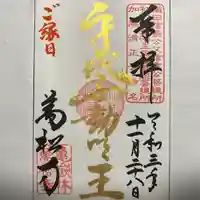 奉拝
令和三年
十一月二十八日
身代不動明王
ご縁日
萬松寺
亀嶽林